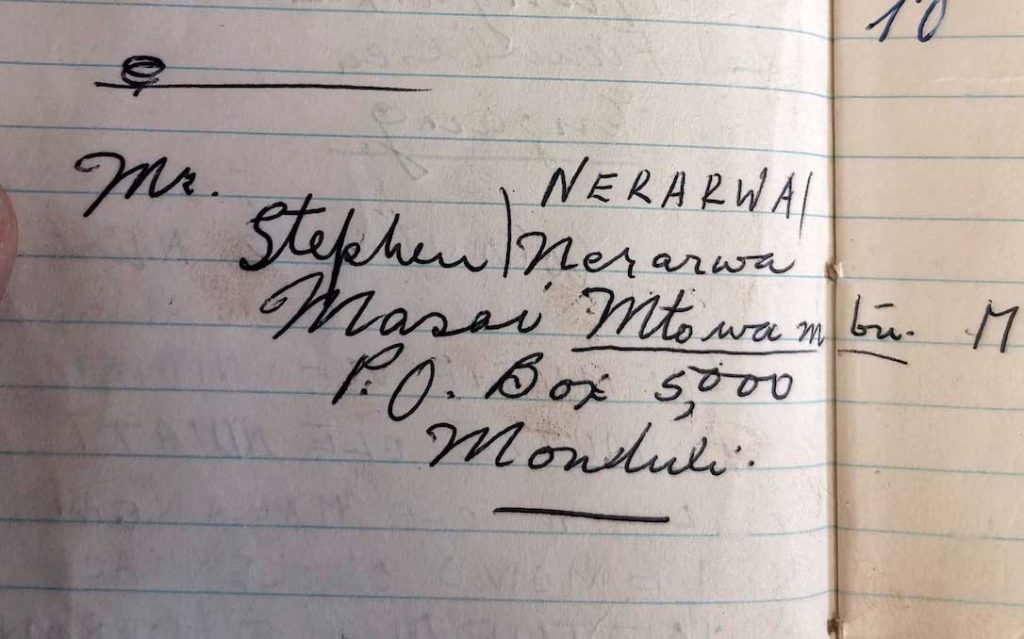 10
Mr.
NERARWA
Stephen Nerarwa
Masai Mtowambu. M
P.O. Box 5,000
Monduli.